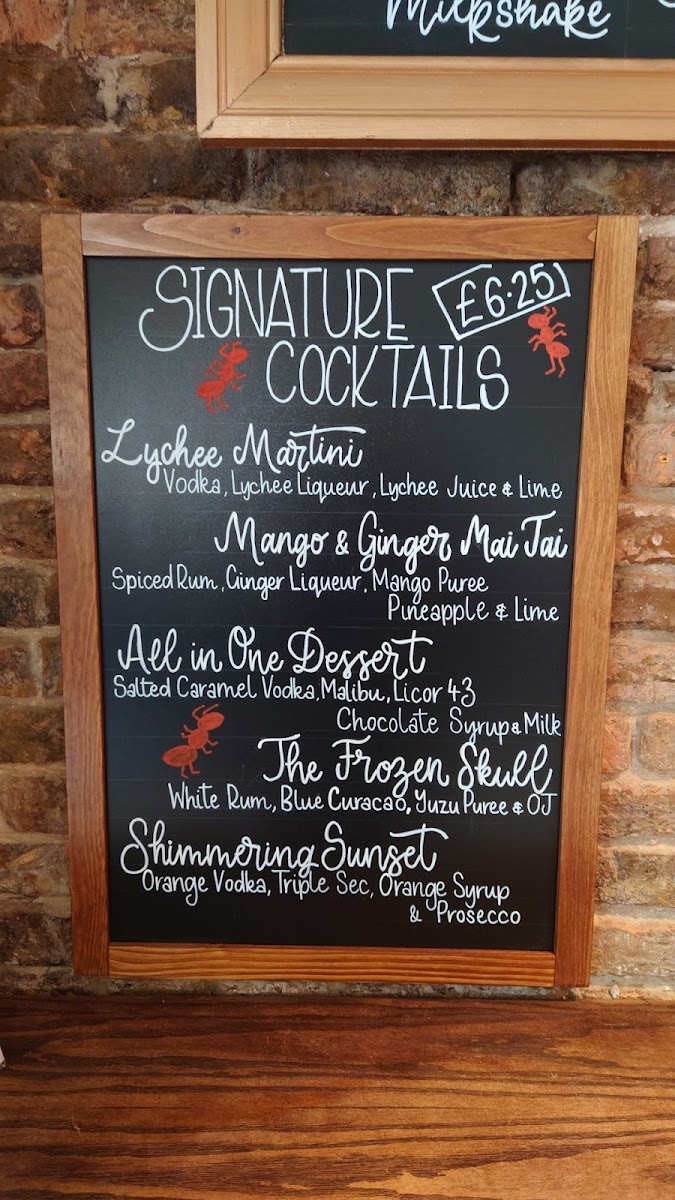 Milkshake
SIGNATURE £6.25
COCKTAILS
Lychee Martini
Vodka, Lychee Liqueur, Lychee Juice & Lime
Mango & Ginger Mai Tai
Spiced Rum, Ginger Liqueur, Mango Puree
Pineapple & Lime
All in One Dessert
Salted Caramel Vodka, Malibu, Licor 43
Chocolate Syrup & Milk
The Frozen Skull
White Rum, Blue Curacao, Yuzu Puree & OJ
Shimmering Sunset
Orange Vodka, Triple Sec, Orange Syrup
& Prosecco